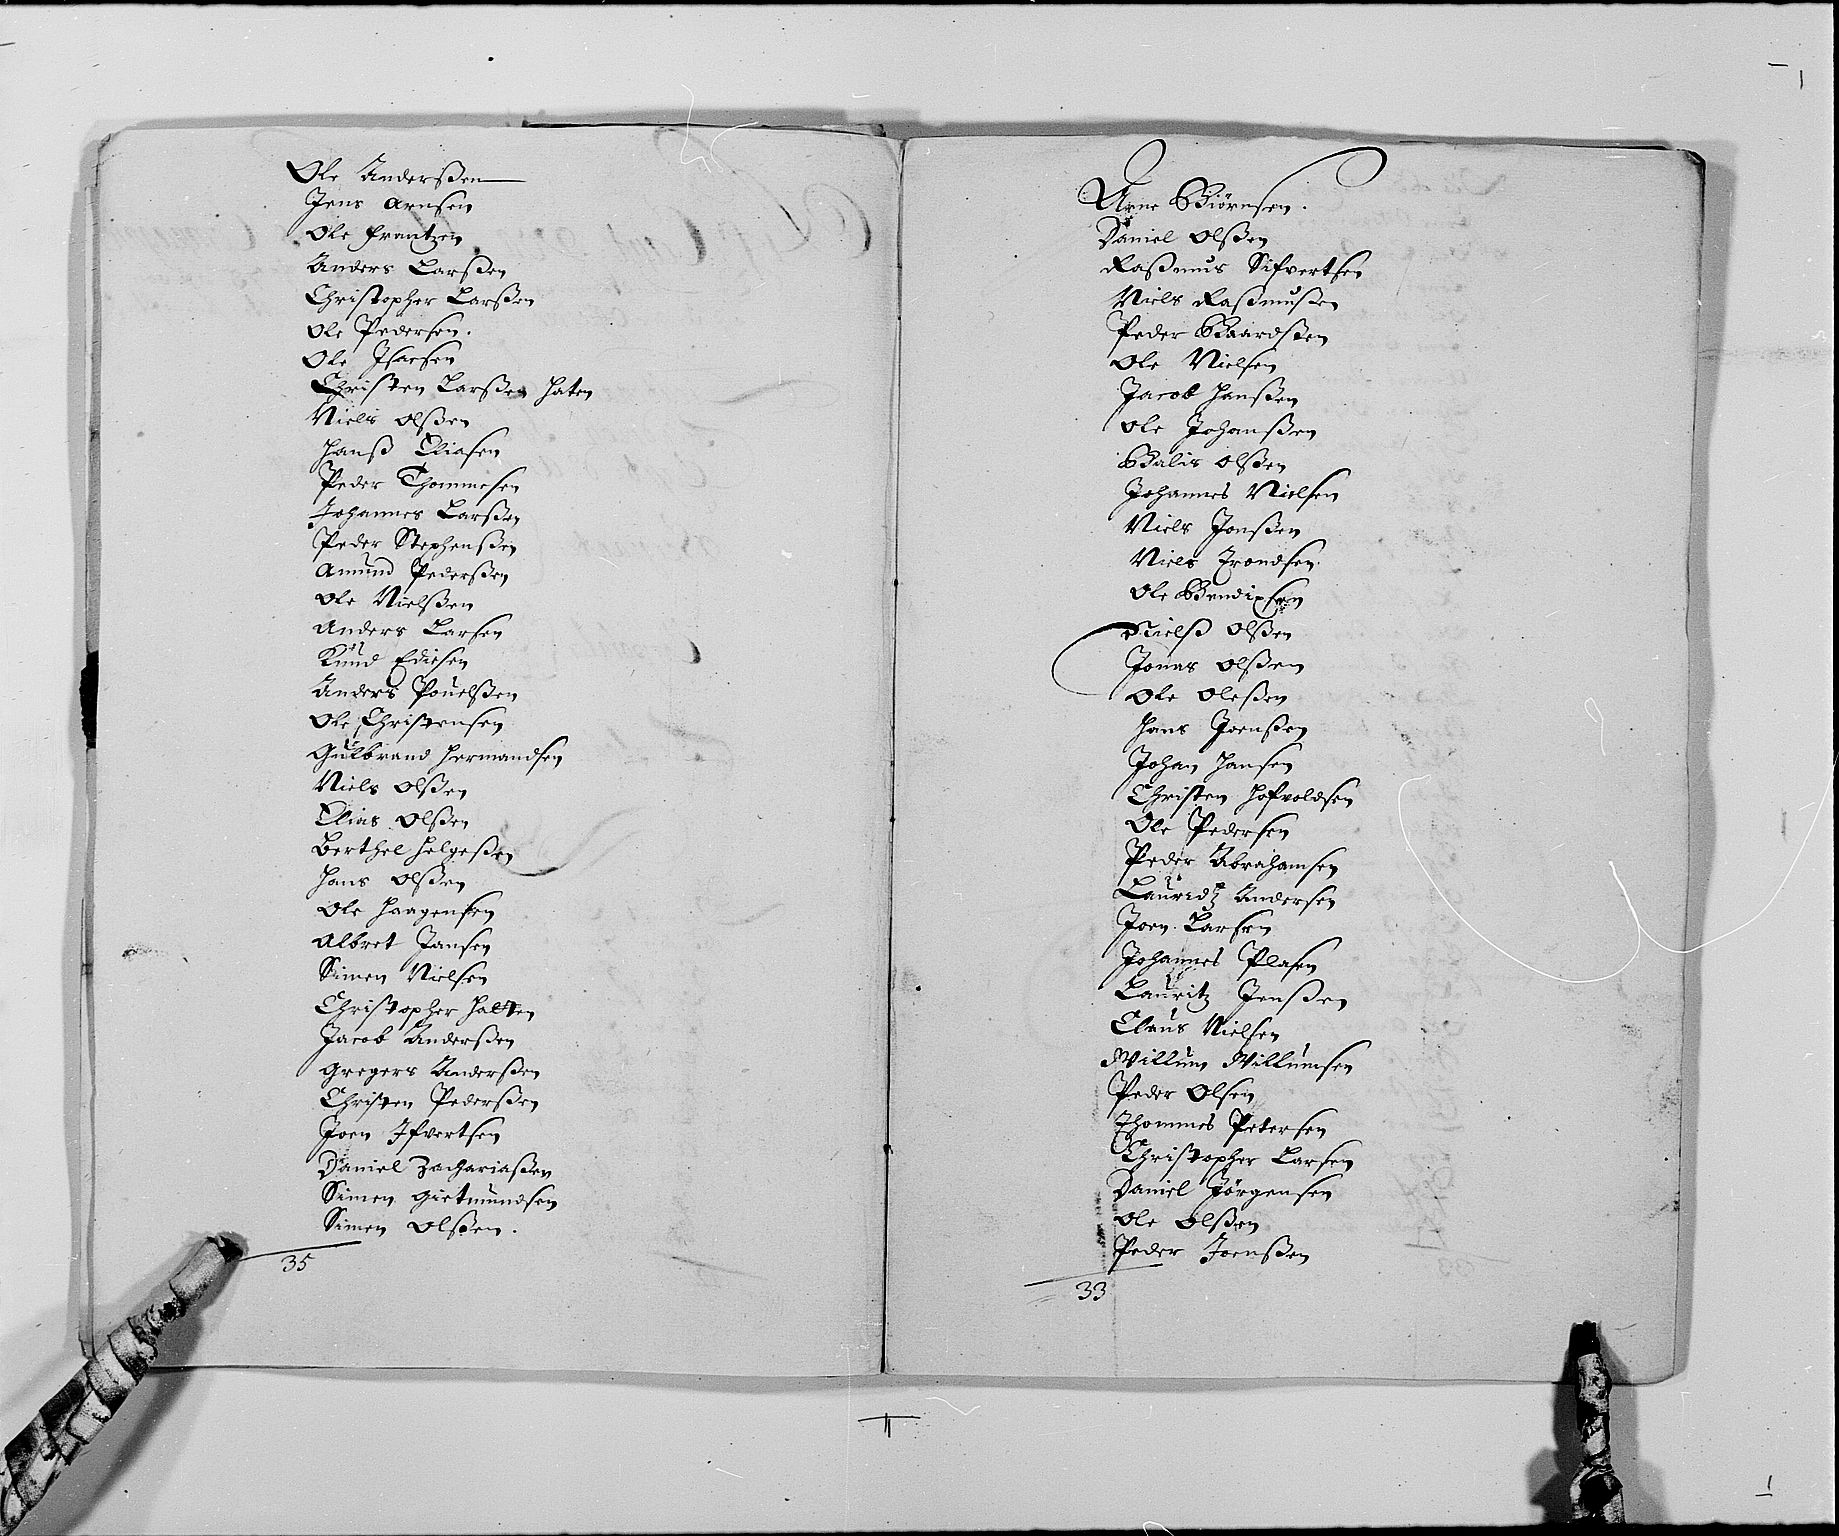 Ole Anderßen
Jens Arnsen
Ole Frantzen
Anders Larßen
Christopher Larßen
Ole Pedersen.
Ole Isacsen
Christen Larßen Haten
Niels Olßen
Hanß Eliasen
Peder Thommesen
Johannes Larßen
Peder Stephenßen
Amund Pederßen
Ole Nielßen
Anders Larsen
Knud Ediesen
Anders Pouelßen
Ole Christensen
Gulbrand Hermandsen
Niels Olßen
Elias Olßen
Berthel Helgeßen
Hans Olßen
Ole Haagensen
Albret Jansen
Simen Nielsen
Christopher Halten
Jacob Anderßen
Gregers Anderßen
Christen Pederßen
Joen Ifvertsen
Daniel Zachariaßen
Simen Gietmundsen
Simen Olßen.
35
Arne Biörnsen.
Daniel Olßen
Raßmus Sifvertsen
Niels Raßmußen
Peder Baardsten
Ole Nielsen
Jacob Hanßen
Ole Johanßen
Balis Olßen
Johannes Nielsen
Niels Jonßen
Niels Trondsen
Ole Bendixsen
Nielß Olßen
Jonas Olßen
Ole Oleßen
Hans Joenßen
Johan Hansen
Christen Hofvoldsen
Ole Pedersen
Peder Abrahamsen
Lauridtz Andersen
Joen Larsen
Johannes Plasen
Lauritz Jenßen
Claus Nielsen
Willum Willumsen
Peder Olsen
Thommes Petersen
Christopher Larsen
Daniel Jörgensen
Ole Olßen
Peder Joenßen
33